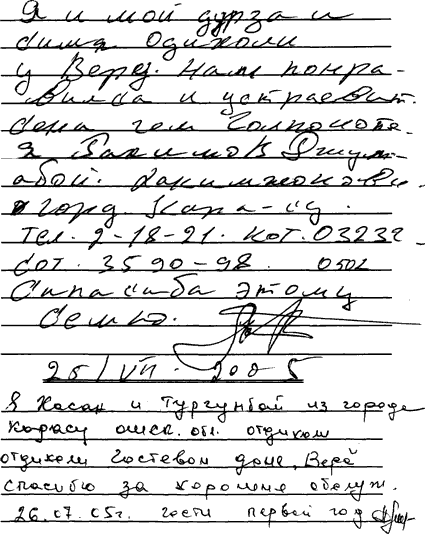 Я и мой дурза и
симя одихоли
у Верез. Нам понра-
вилса и устраевит.
сена чем Голпоноте.
я Закимов Джум-
абой. Хакимжонови.
горд. Кара-су.
Тел. 2-18-21. кот. 03232
Сот. 3590-98. 0502
Сапасиба этому
семю.
25/VII. 2005
Я Хасан и Тургунбой из города
Карасу ошск. обл. отдихом
отдихоли Гостевом доме. Верё
спасибо за хорошия обслуж.
26.07.05г. гости первей год